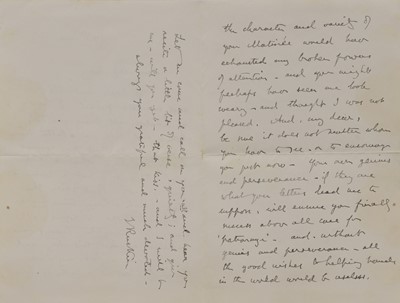 the character and variety of
your Matinée would have
exhausted my broken powers
of attention - and you might
perhaps have seen me look
weary - and thought I was not
pleased. And, my dear,
be sure it does not matter whom
you have to see - or to encourage
you just now - Your own genius
and perseverance - if they are
what your letters lead me to
suppose, will ensure you finally -
success above all care for
'patronage' - and - without
genius and perseverance - all
the good wishes to helping hands
in the world would be useless.
Let me come and call on you and hear you
recite a little bit of verse, quietly; and give
me - will you - that kiss. - and I will be
always your grateful and much devoted -
J Ruskin